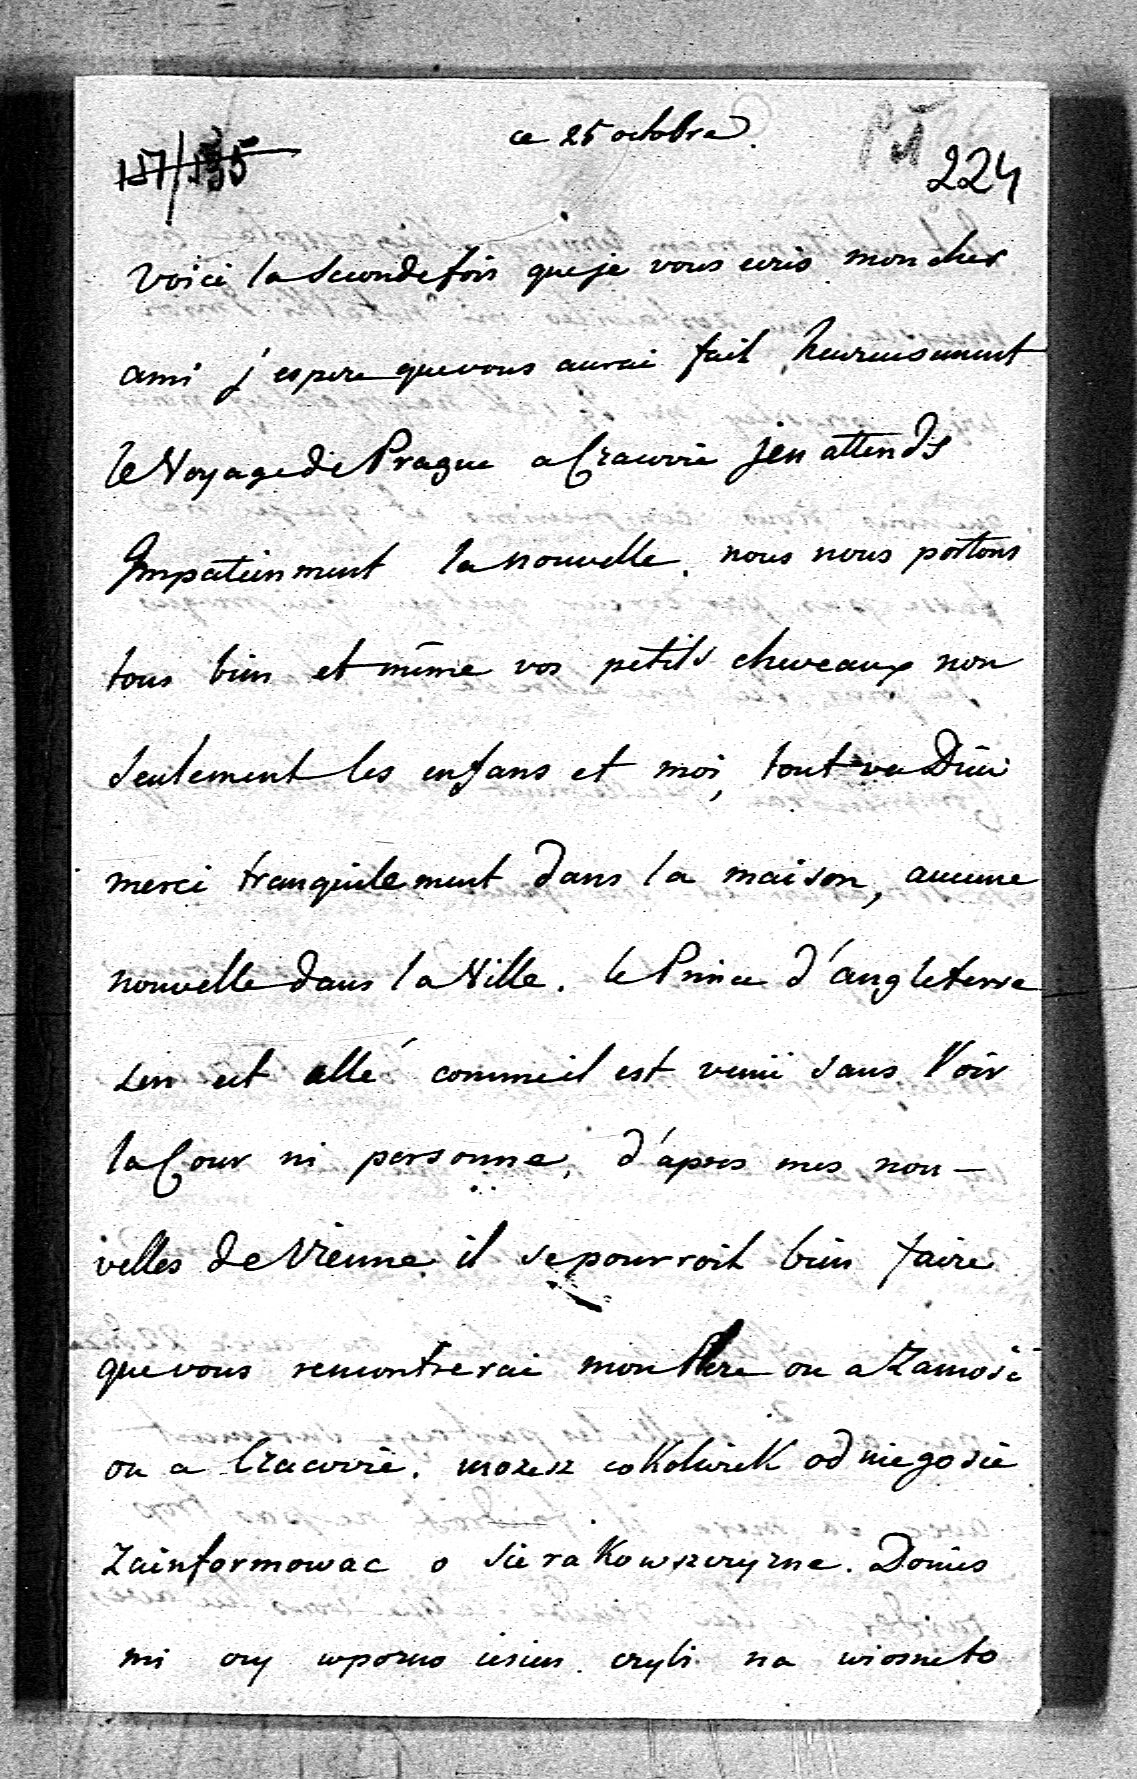 ce 25 octobre.
157/135
224
Voici la Seconde fois que je vous ecris mon cher
ami j'espere que vous aurai fait heureusement
le Voyage de Prague a Cracovie jen attends
Impatienment la nouvelle. nous nous portons
tous bien et même vos petits cheveaux non
seulement les enfans et moi, tout va Dieu
merci tranquilement dans la maison, aucune
nouvelle dans la Ville. le Prince d'angleterre
sen est allé comme il est venü sans Voir
la Cour ni personne, d'apres mes nou-
velles de Vienne il se pourroit bien faire
que vous rencontrerai mon Pere ou a Zamość
ou a Cracovie. mozesz co Kolwiek od niego sie
Zainformowac o Sierakowszczyzne. Donies
mi czy w pozno iesien czyli na wiosne to